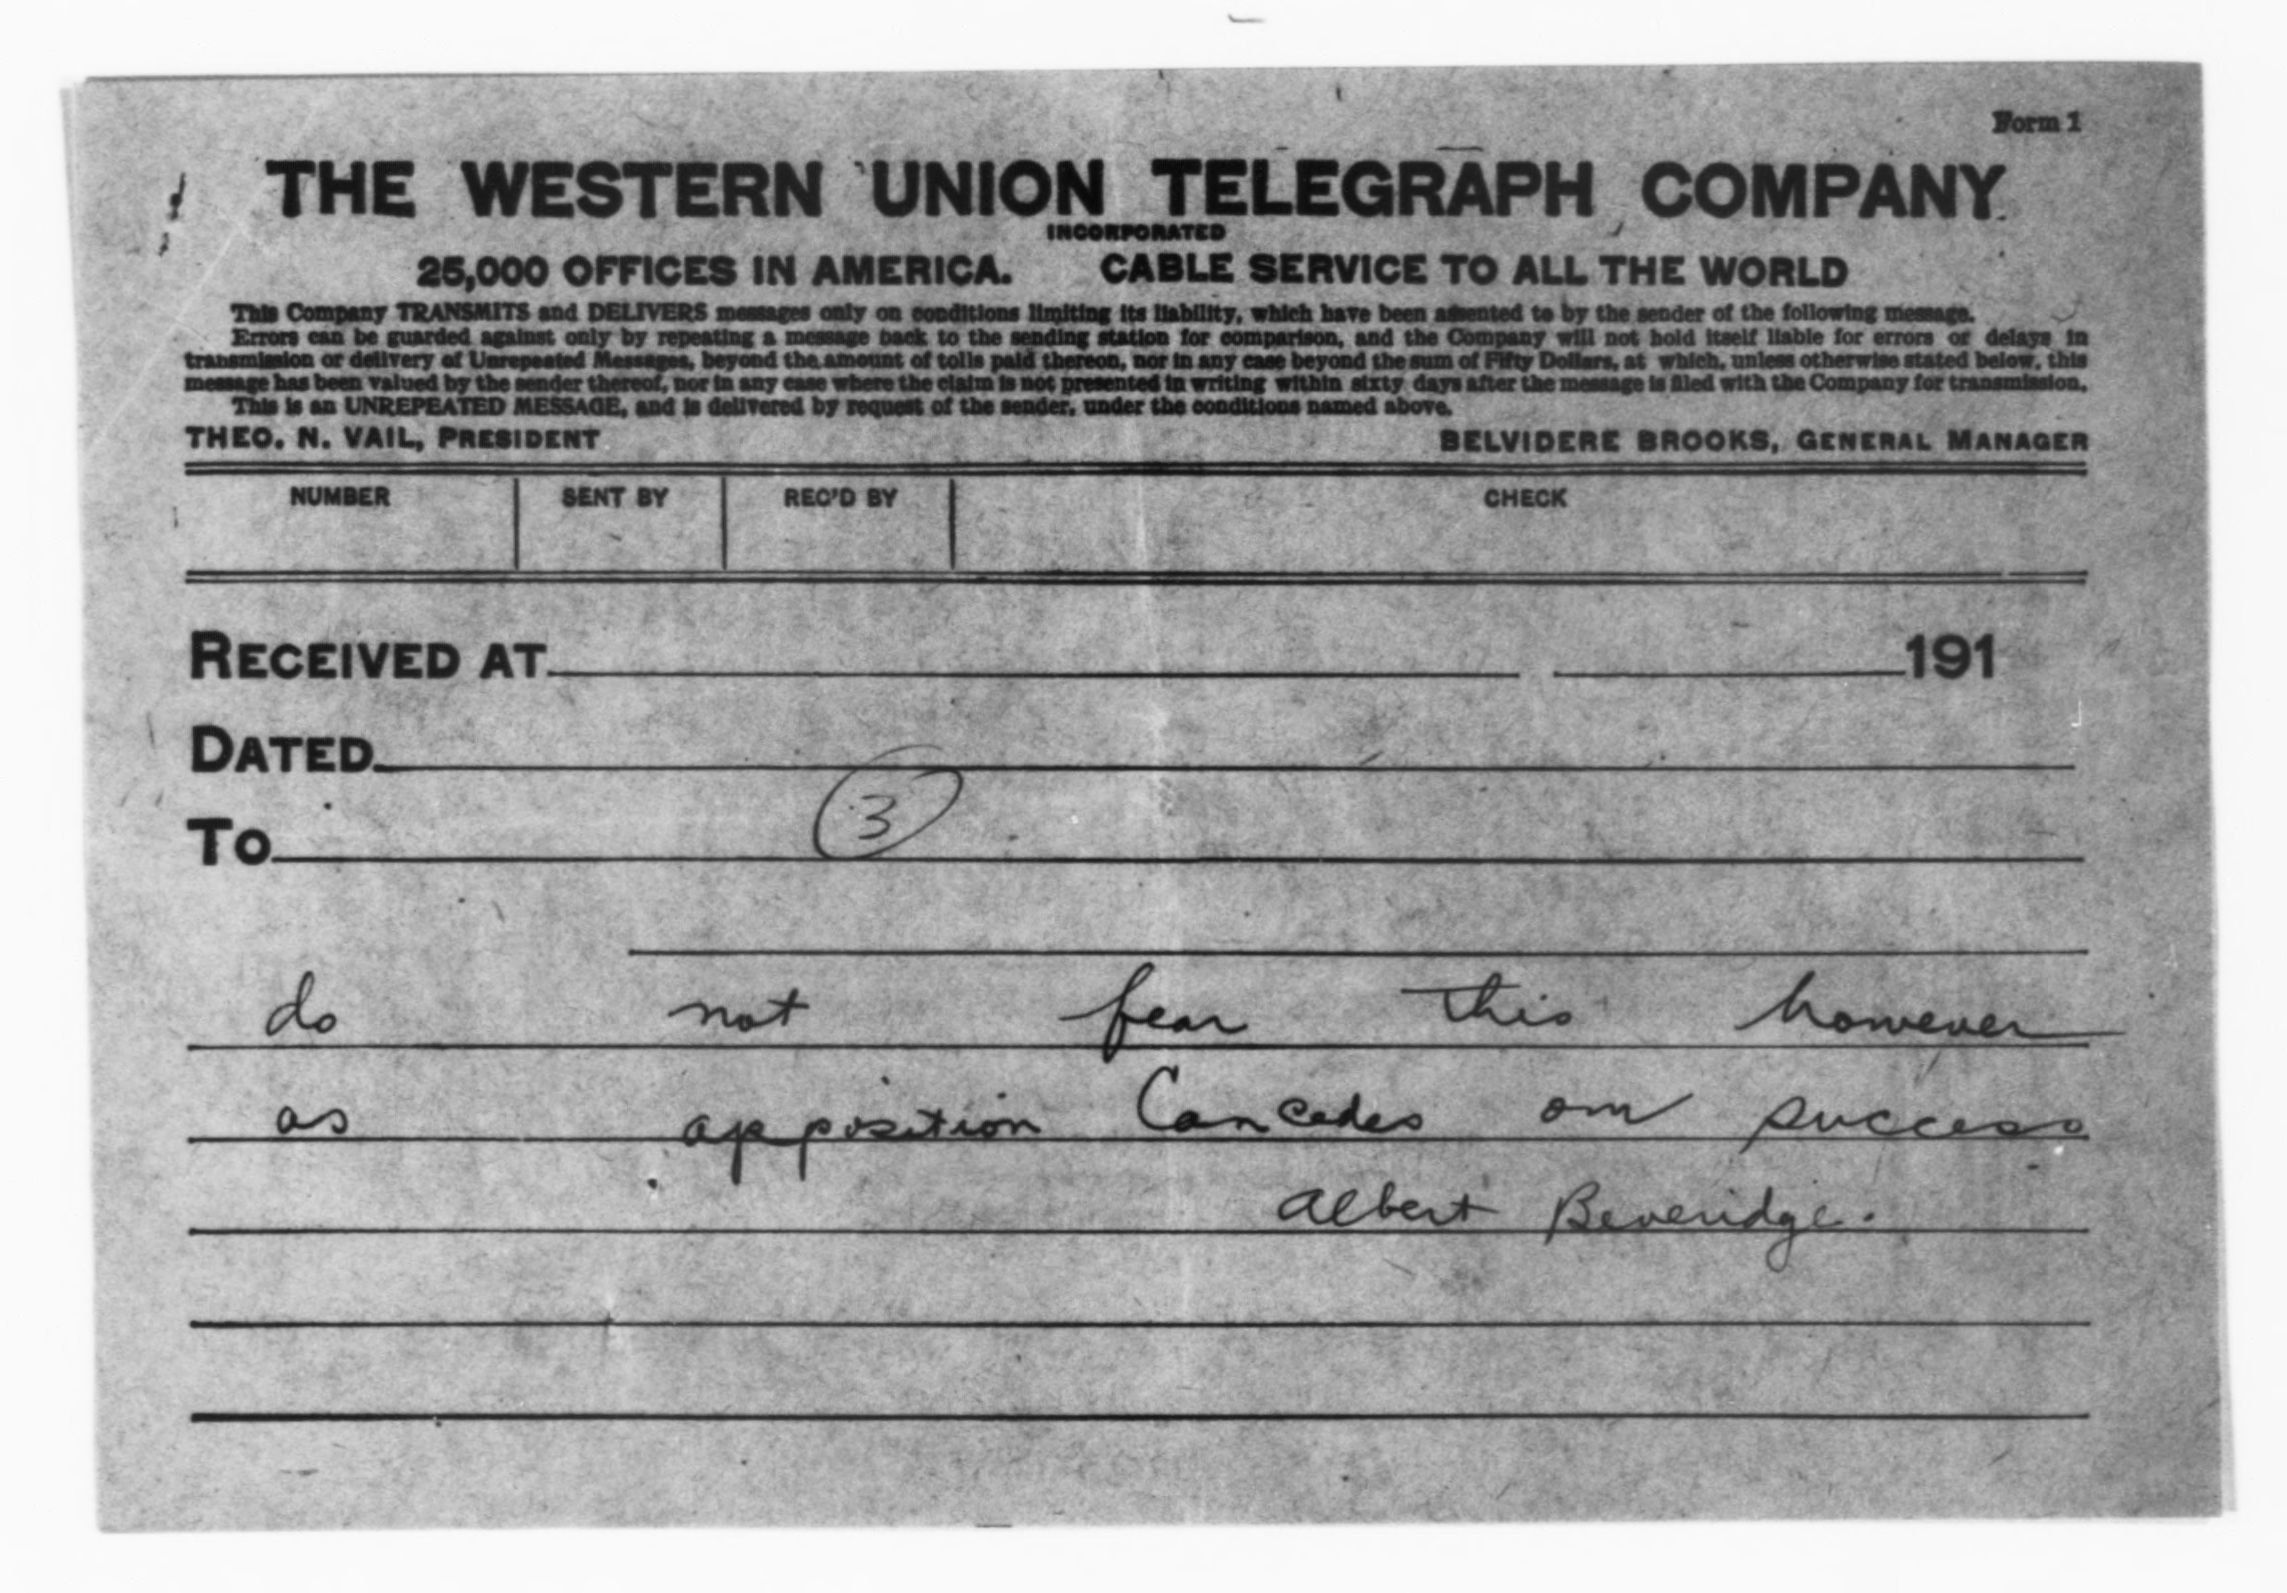 Form 1
THE WESTERN UNION TELEGRAPH COMPANY
INCORPORATED
25,000 OFFICES IN AMERICA. CABLE SERVICE TO ALL THE WORLD
This Company TRANSMITS and DELIVERS messages only on conditions limiting its liability, which have been assented to by the sender of the following message.
Errors can be guarded against only by repeating a message back to the sending station for comparison, and the Company will not hold itself liable for errors or delays in
transmission or delivery of Unrepeated Messages, beyond the amount of tolls paid thereon, nor in any case beyond the sum of Fifty Dollars, at which, unless otherwise stated below, this
message has been valued by the sender thereof, nor in any case where the claim is not presented in writing within sixty days after the message is filed with the Company for transmission.
This is an UNREPEATED MESSAGE, and is delivered by request of the sender, under the conditions named above.
THEO. N. VAIL, PRESIDENT BELVIDERE BROOKS, GENERAL MANAGER
NUMBER SENT BY REC'D BY CHECK
RECEIVED AT 191
DATED
3
TO
do not fear this however
as opposition Concedes our success
Albert Beveridge.